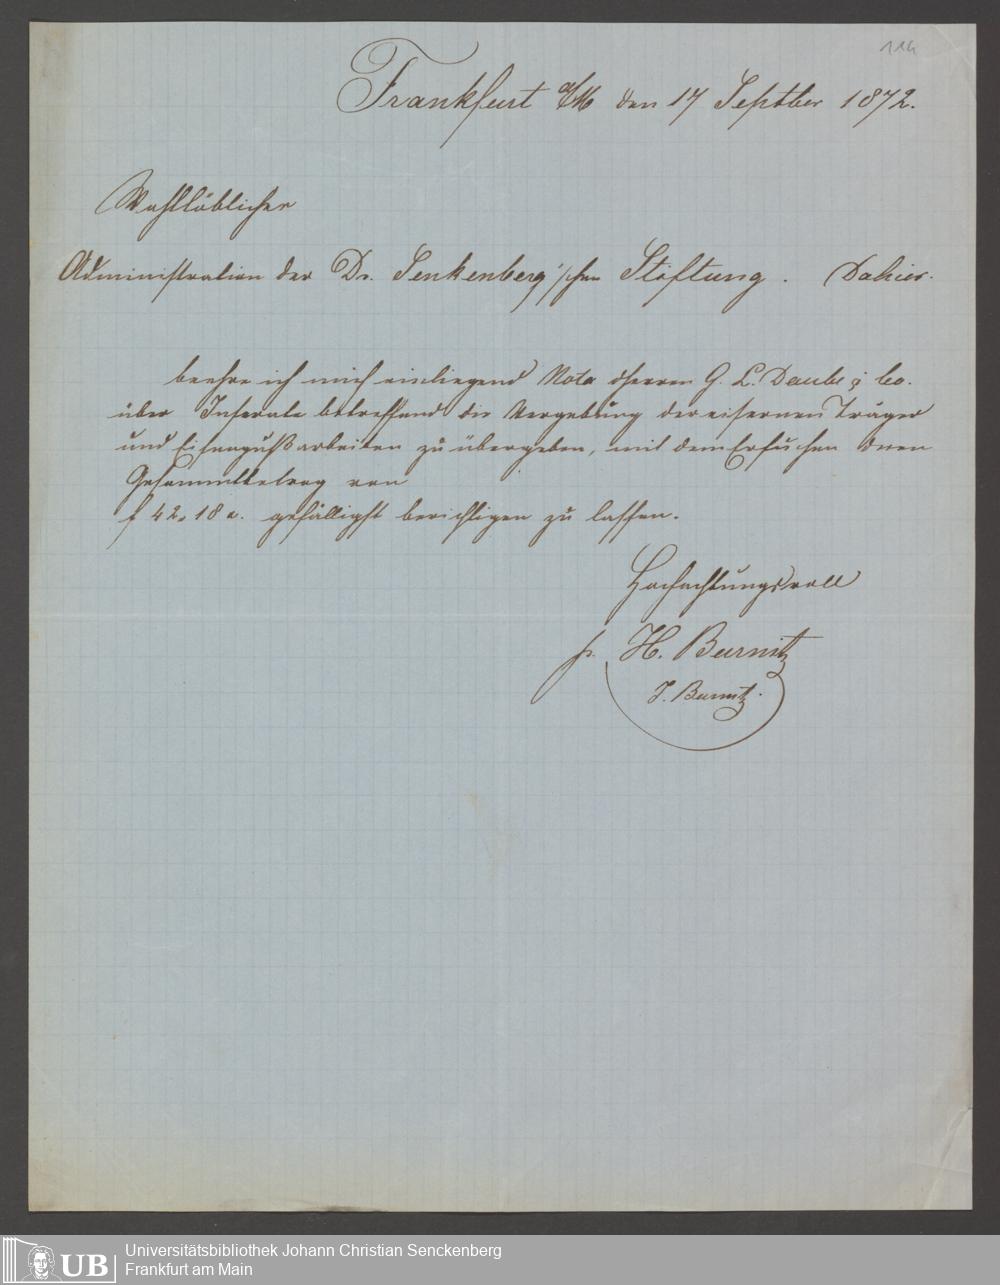 114
Frankfurt a/M den 17 Septber 1872.
Wohllöblicher
Administration der Dr. Senkenberg'schen Stiftung. Dahier.
beehre ich mich einliegend Nota d Herren G. L. Daube & Co.
über Inserate betreffend die Vergebung der eisernen Träger
und Eisengußarbeiten zu übergeben, mit dem Ersuchen den
Gesammtbetrag von
f 42. 18 x. gefälligst berichtigen zu lassen.
Hochachtungsvoll
pr. H. Burnitz
J. Burnitz.
Universitätsbibliothek Johann Christian Senckenberg
Frankfurt am Main
UB